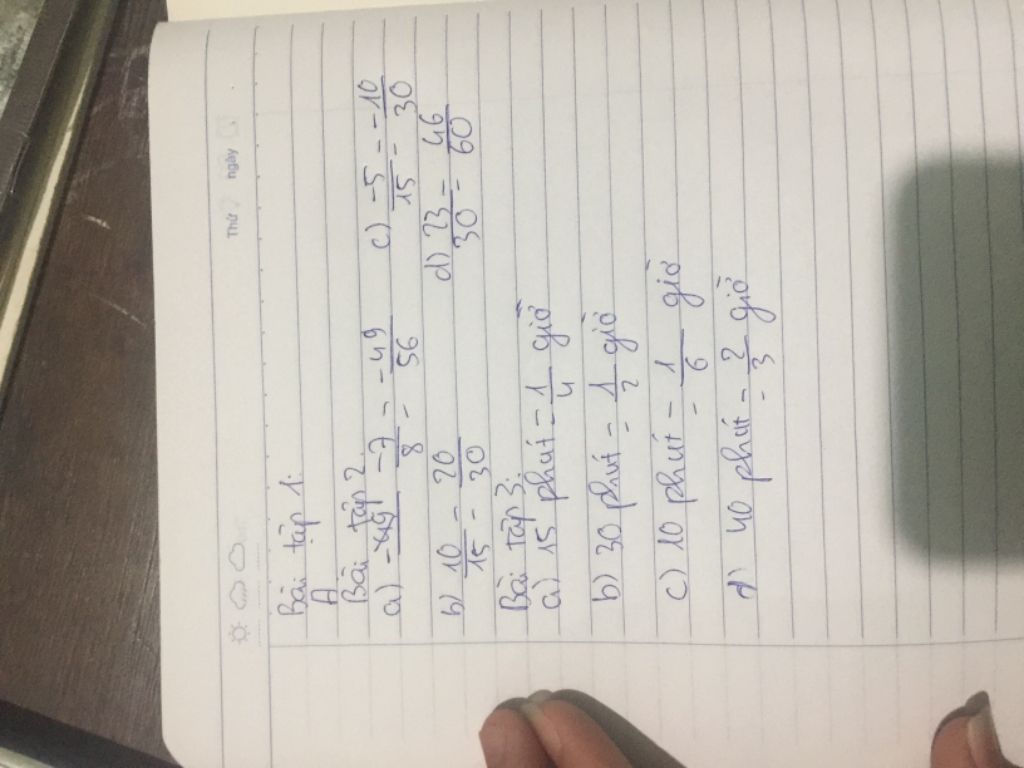 Thứ ngày
Bài tập 1:
A
Bài tập 2
a) -7/8 = -49/56 c) -5/15 = -10/30
b) 10/15 = 20/30 d) 23/30 = 46/60
Bài tập 3:
a) 15 phút = 1/4 giờ
b) 30 phút = 1/2 giờ
c) 10 phút = 1/6 giờ
d) 40 phút = 2/3 giờ